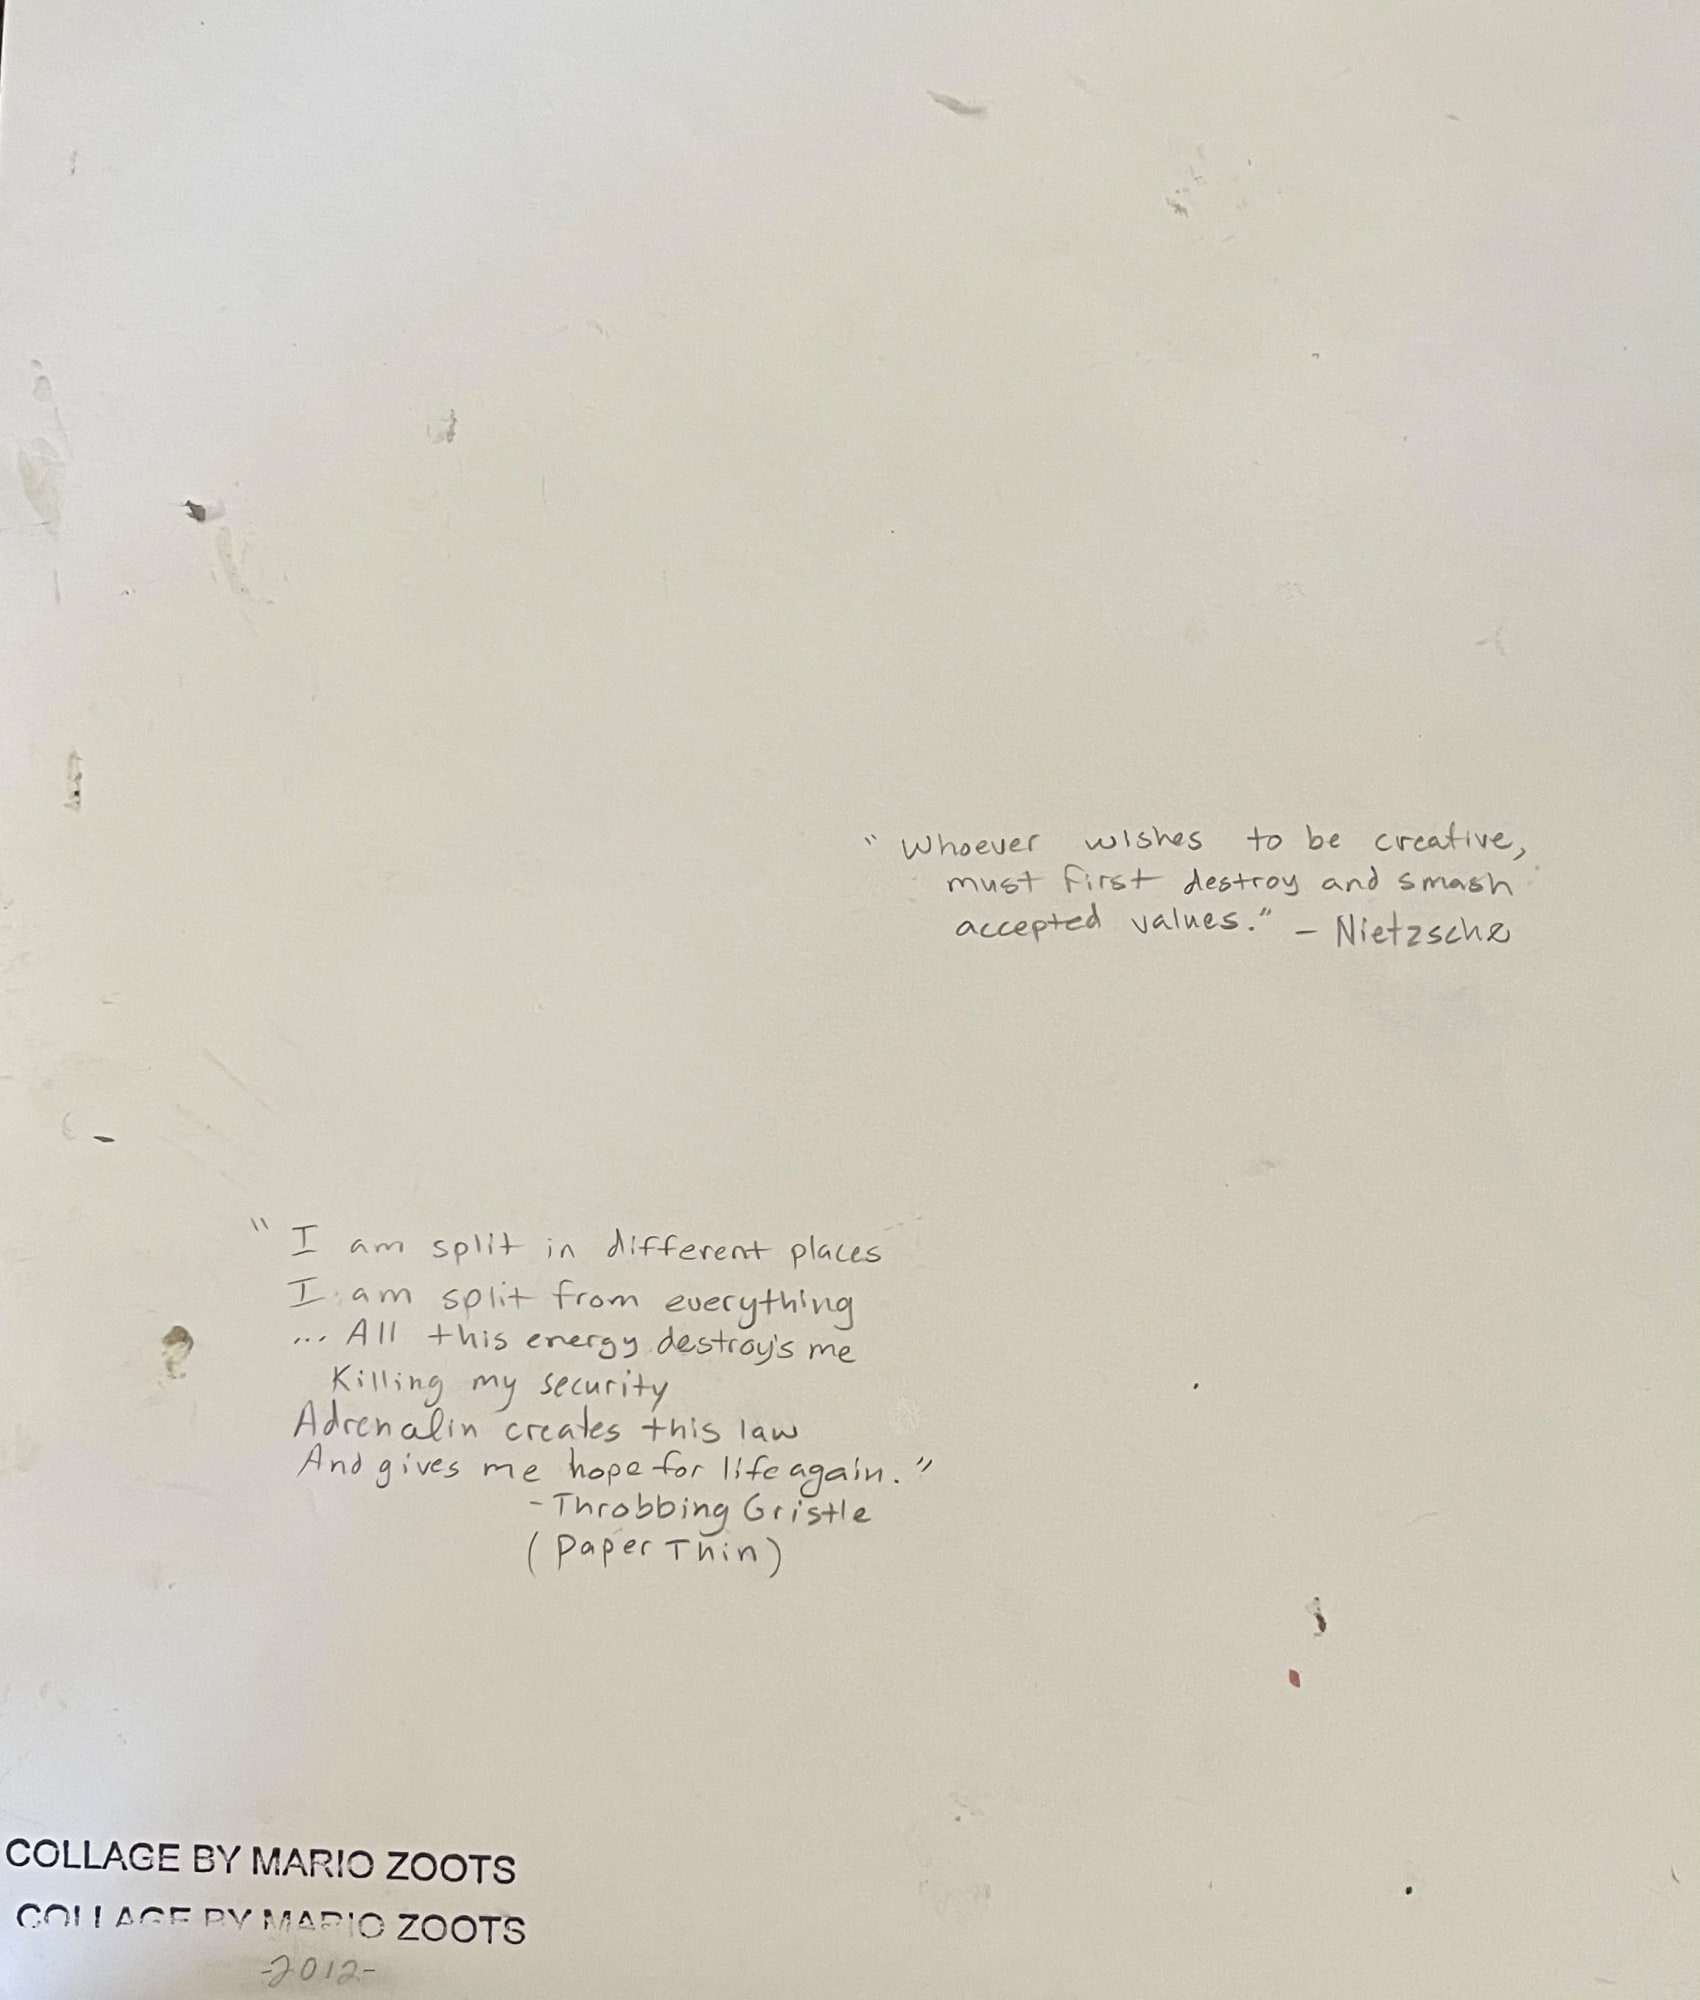 "Whoever wishes to be creative,
must first destroy and smash
accepted values." - Nietzsche
"I am split in different places
I am split from everything
... All this energy destroy's me
Killing my security
Adrenalin creates this law
And gives me hope for life again."
-Throbbing Gristle
(Paper Thin)
COLLAGE BY MARIO ZOOTS
COLLAGE BY MARIO ZOOTS
-2012-